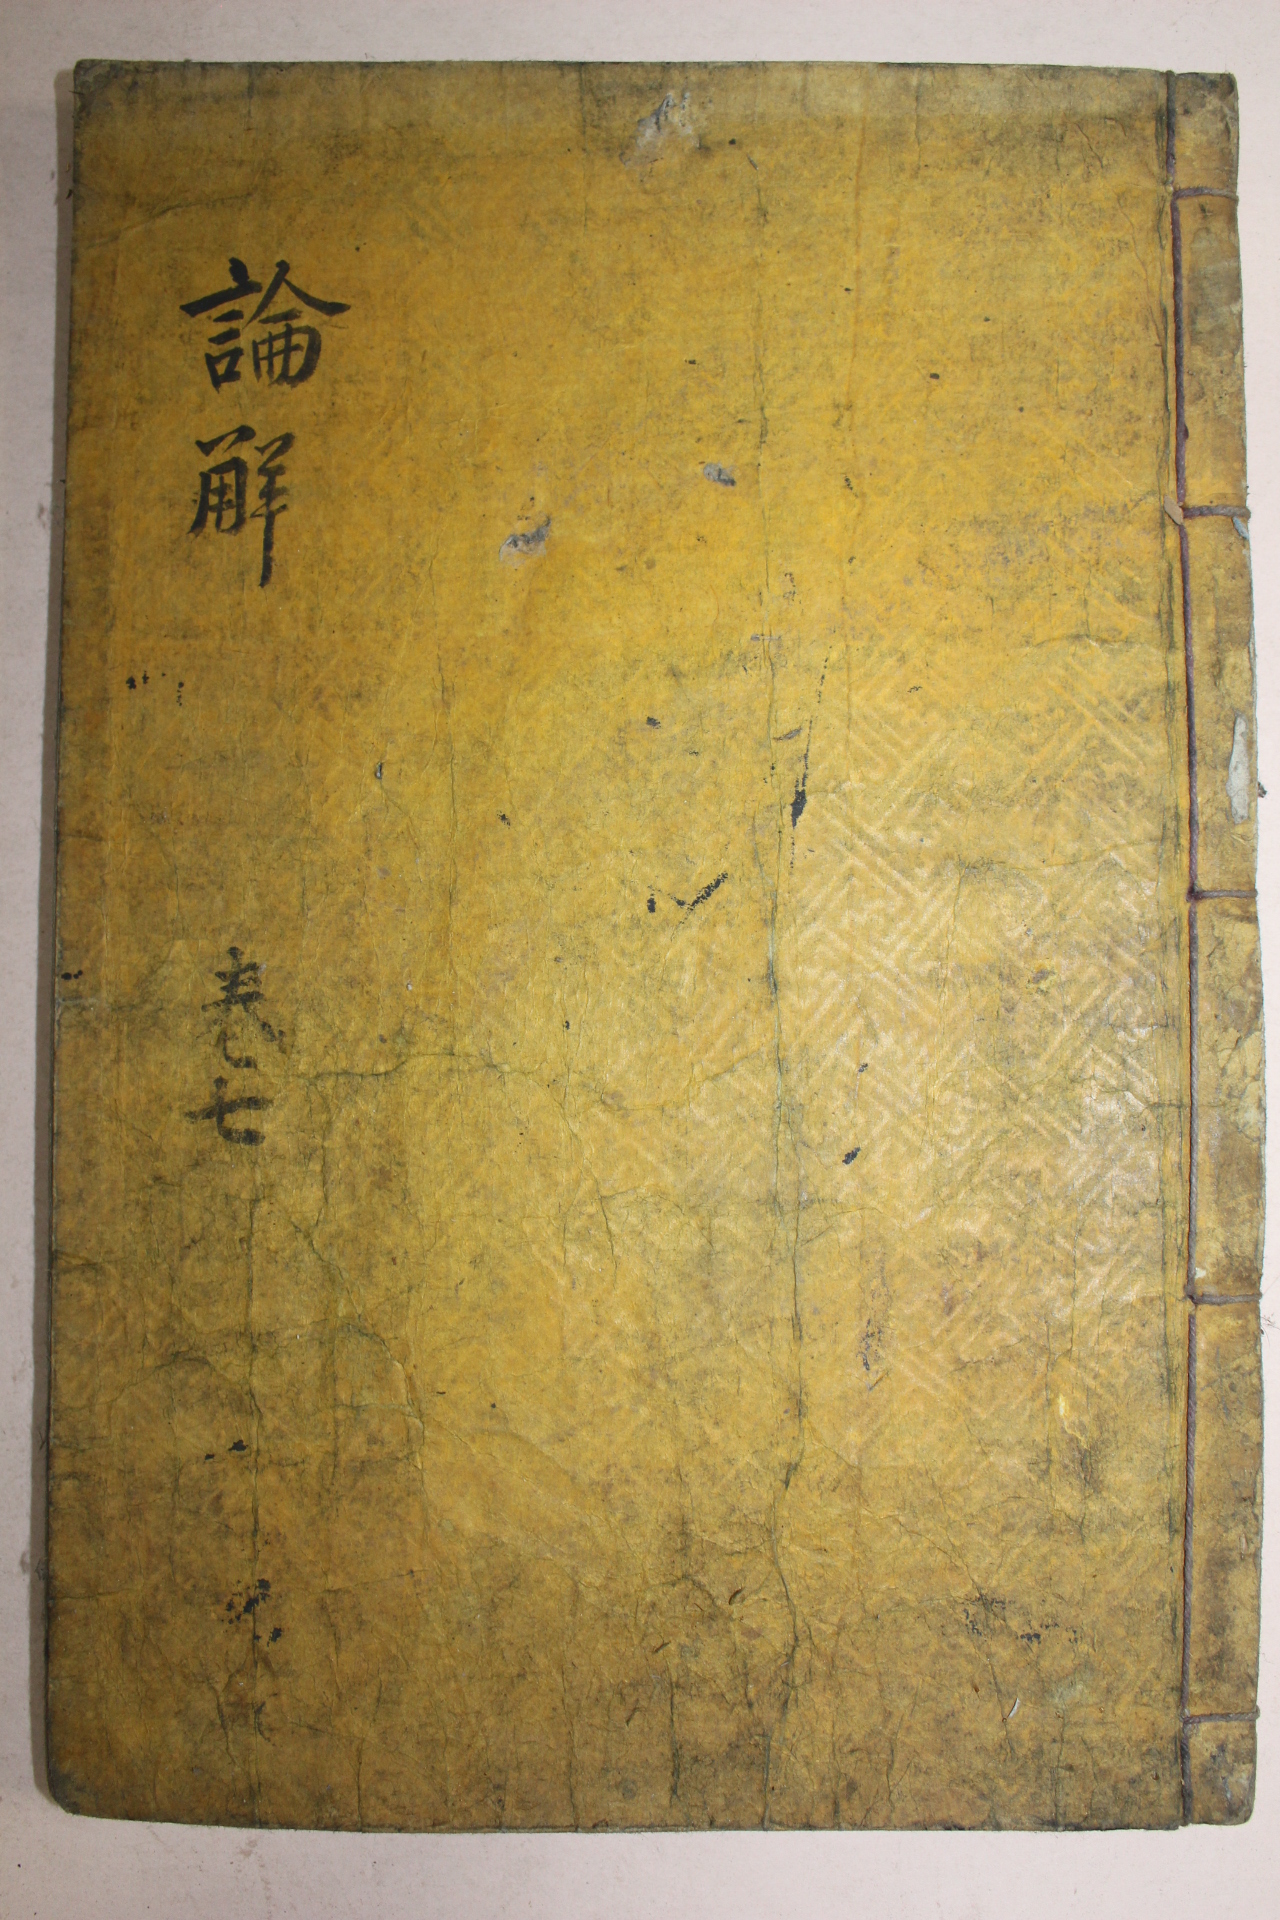 論解
卷七